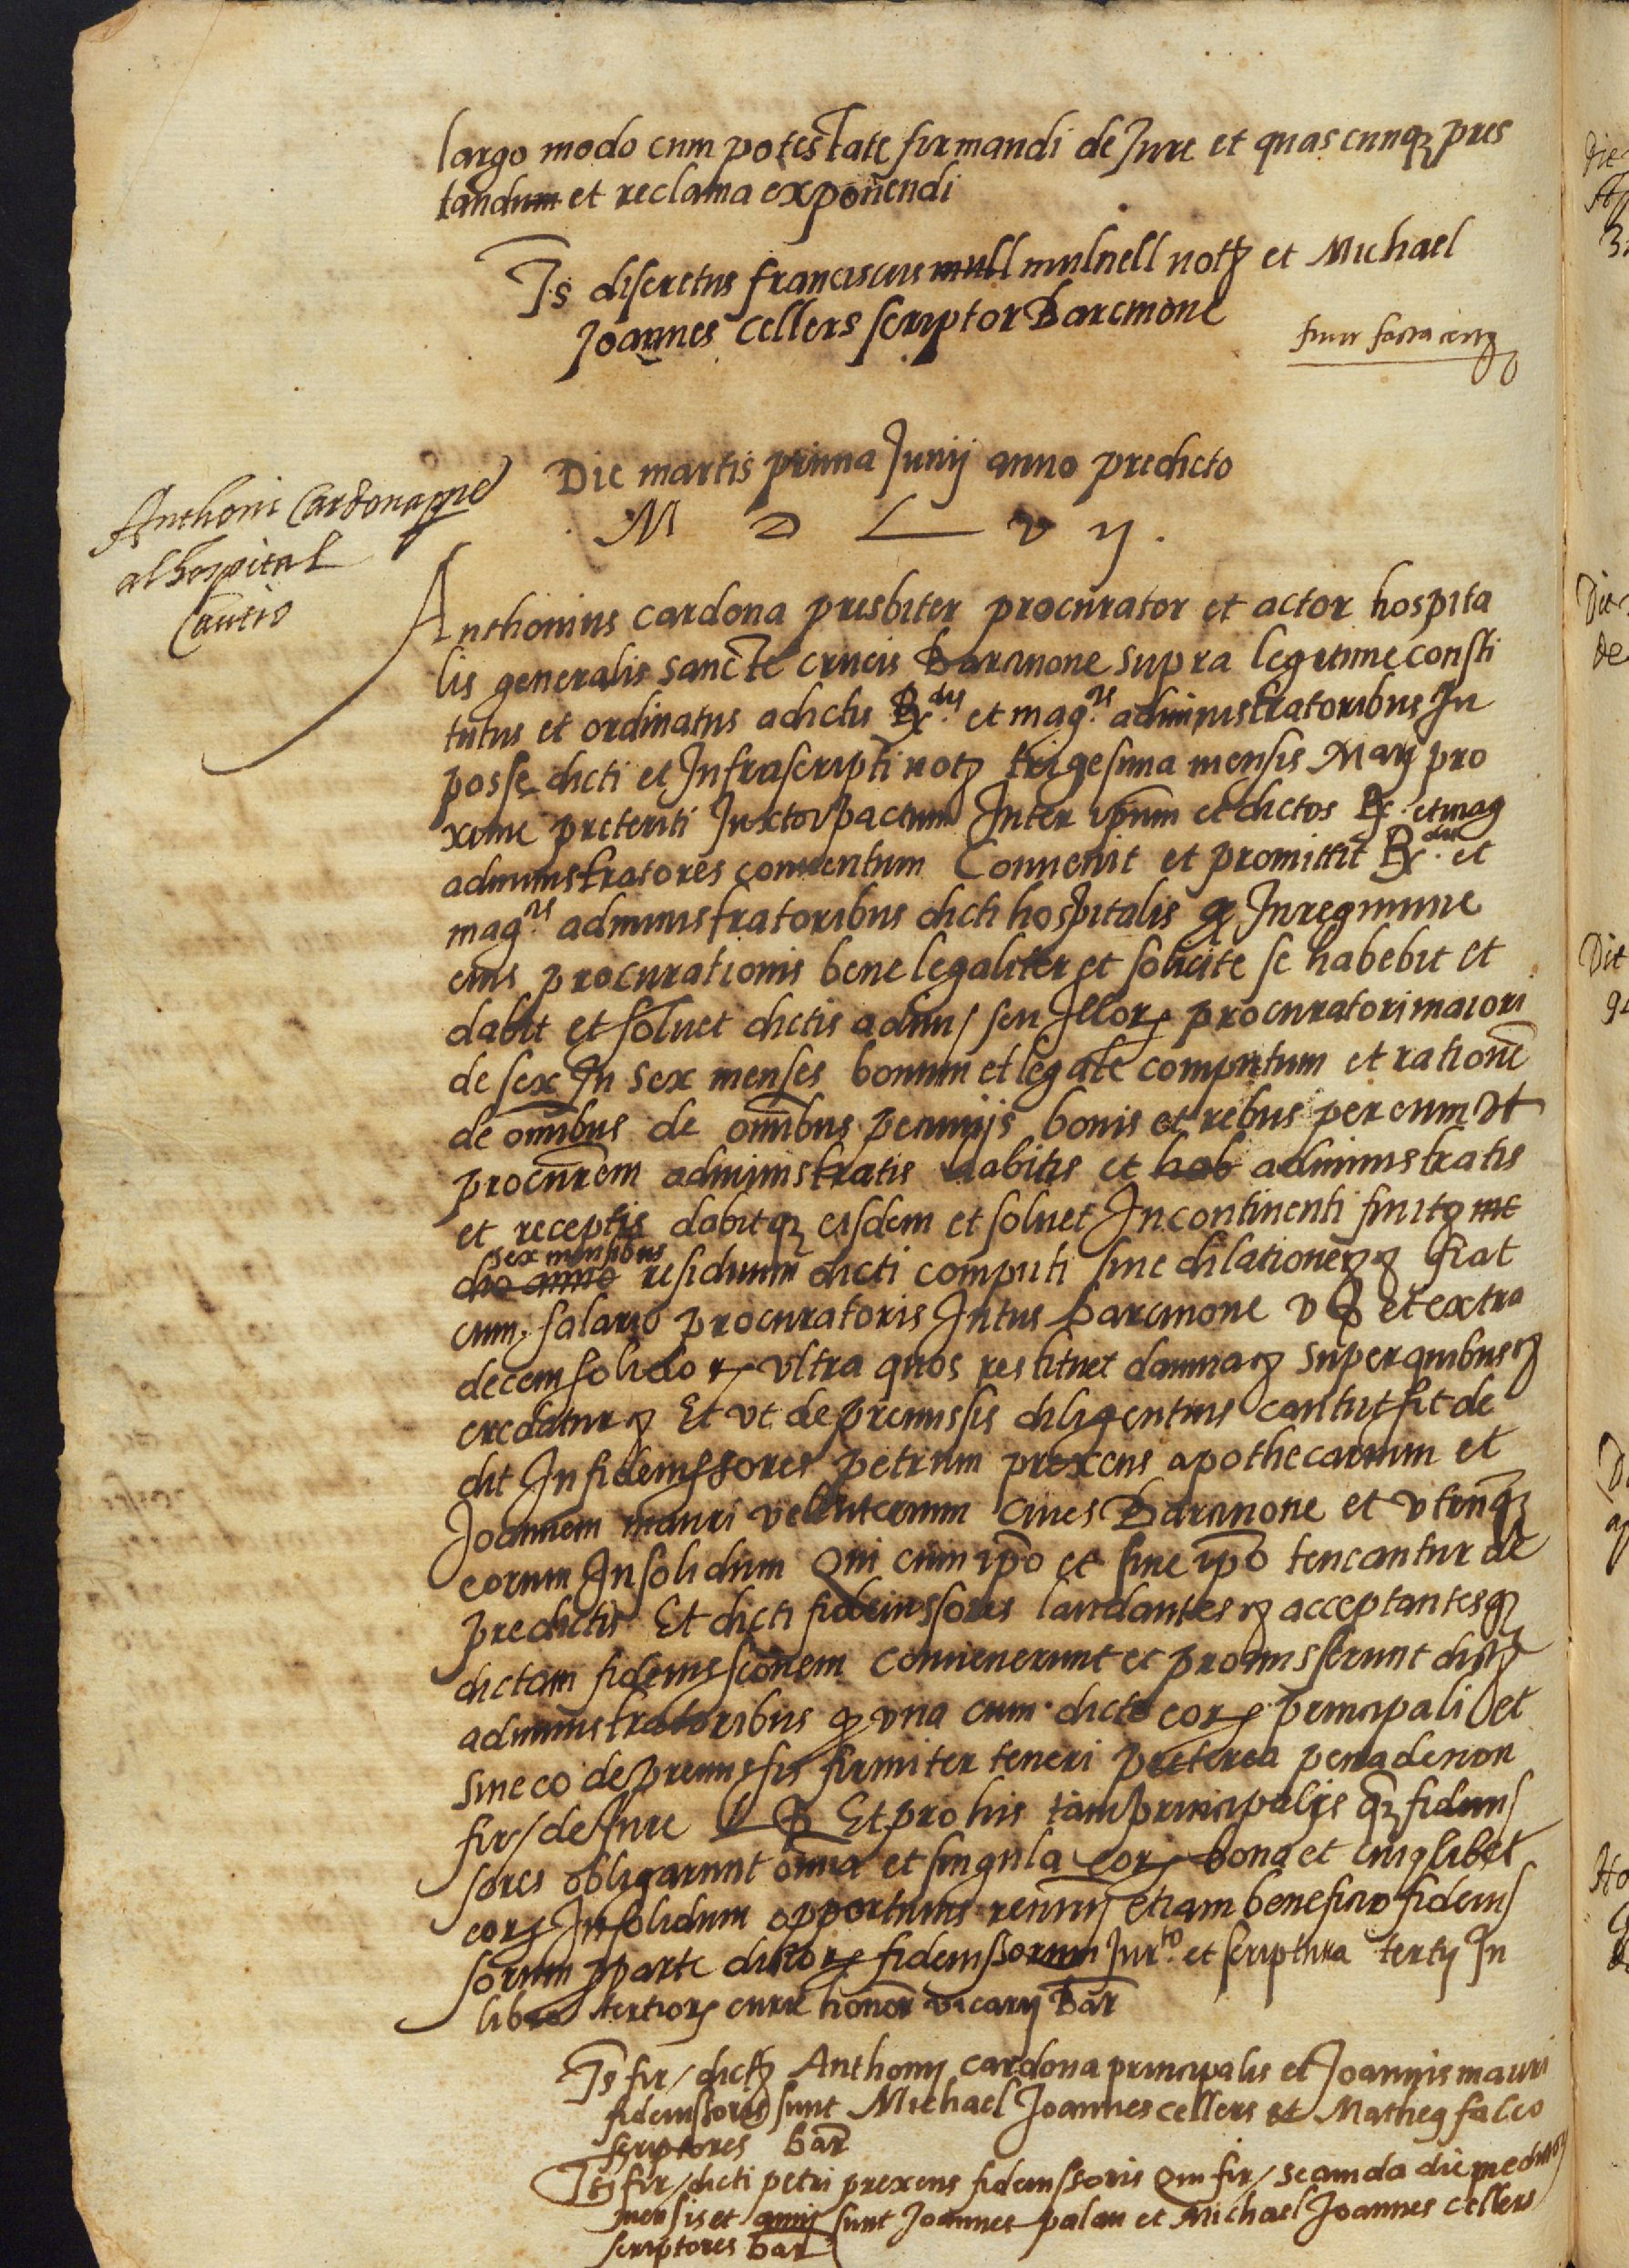 largo modo cum potestate firmandi de Jure et quascunqz pres
tandum et reclama exponendi
Ts discretus franciscus mull mulnell notz et Michael
Joannes cellers scriptor Barcinone
Die martis prima Junij anno predicto
M D L v ij.
Anthoni Cardona pre
al hospital
Cautio
Anthonius cardona presbiter procurator et actor hospita
lis generalis sancte crucis Barcinone supra legitime consti
tutus et ordinatus a dictis Rdis et magcis administratoribus In
posse dicti et Infrascripti notz trigesima mensis Maij pro
xime preteriti Juxta pactum Inter ipsum et dictos R. et mag
administratores conventum Convenit et promittit Rdis. et
magcis administratoribus dicti hospitalis q In regimine
eius procurationis bene legaliter et solicite se habebit et
dabit et solvet dictis admi/ seu Illorz procuratori maiori
de sex In sex menses bonum et legale computum et rationē
de omībus de omībus pecunijs bonis et rebus per eum vt
procurem administratis habitis et hab administratis
et receptis dabitqz eisdem et solvet Incontinenti finitq
sex mensibus
dio anno residuum dicti computi sine dilatione fiat
cum salario procuratoris Intus Barcinone v s et extra
decem solidorz vltra quos restituet damna superquibus
credatur Et vt de premissis diligentius cautut sit de
dit In fideiussores petrum prexens apothecarium et
Joannem mauri velluterium Cives Barcinone et vtrūqz
eorum Insolidum Qui cum ipo et sine ipo teneantur de
predictis Et dicti fideiussores laudantes acceptantesqz
dictam fideiussionem convenerunt et promisserunt dictz
administratoribus q vna cum dicto eorz principali et
sine eo de premissis firmiter teneri preterea pena de non
fir/ de Jure Et pro his tam principalis qz fideius/
sores obligarunt omia et singula eorz bona et cuiqlibet
eorz Insolidum opportunis renun/ etiam beneficio fideius/
sorum pparte dictorz fideiussorum Jurto. et scriptura tertij In
libro tertiorz curie honor vicarij Bar
Ts fir/ dictz Anthonij cardona principalis et Joannis mauri
fideiussoris sunt Michael Joannes cellers et Matheq falco
scriptores bar
Ts fir/ dicti petri prexens fideiussoris Qui fir/ secunda die predictorz
mensis et anni sunt Joannes palau et Michael Joannes cellers
scriptores bar